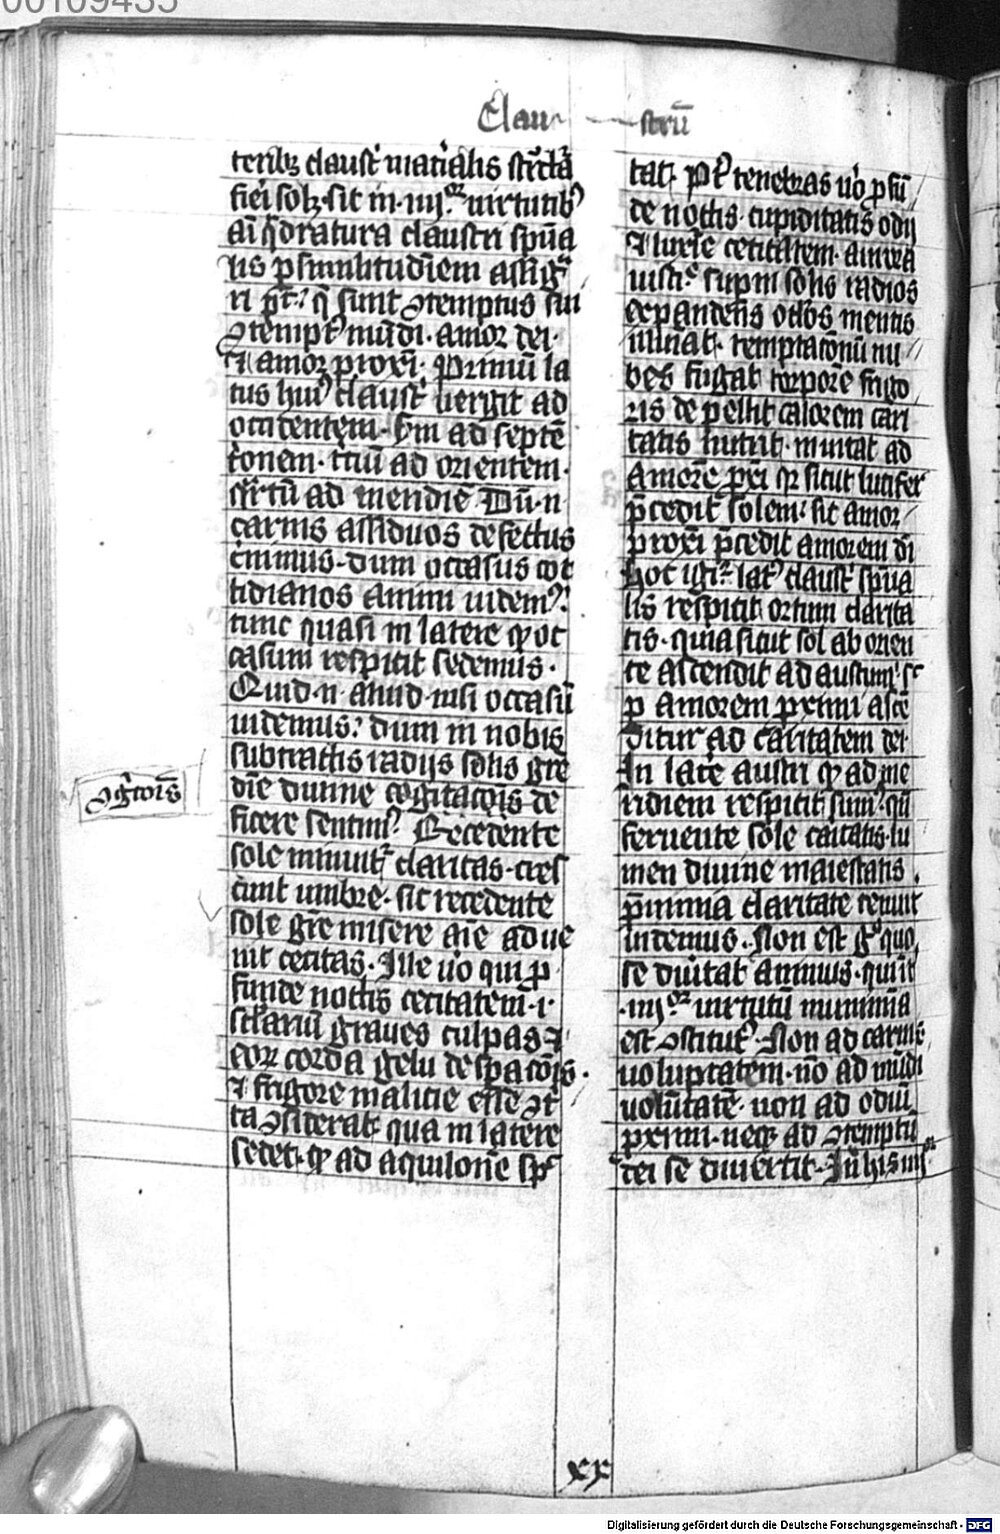 00109435
Clau strū
teribꝫ claustˀ mat̾ialis strc̄tā
fieri solꝫ sit in iiijᵒʳ uirtutibꝰ
ai q̄dratura claustri sp̄ua
lis ꝑ similitudīem assigᵃ
ri pt̄ q̄ sunt ꝯtemptus sui
ꝯtemptꝰ mūdi · amor dei ·
⁊ amor ꝓximi · Primū la
tus huiꝰ claustˀ uergit ad
occidentem · scdm ad septē
tōnem · tciū ad orientem ·
qrtū ad meridiē Dū · n ·
carnis assiduos defectus
cernimus · dum occasus cot
tidianos animi uidemꝰ ·
tunc quasi in latere qꝫ oc
casum respicit sedemus ·
Quid · n · aliud nisi occasū
uidemus · dum in nobis
subtractis radijs solis gr̄e
dīe diuine cogitacōis de
ficere sentimꝰ Recedente
ꝯgitōis
sole minuitᷣ claritas · cres
cunt umbre · sic recedente
sole gr̄e misere aīe adue
nit cecitas · Ille uo qui ꝓ
funde noctis cecitatem · i ·
sclariū graues culpas ⁊
eoꝝ corda gelu despacōis ·
⁊ frigore malicie esse ꝯt
cta ꝯsiderat · qua in latere
sedet · qꝫ ad aquilonē spᶜ
tat · Pꝰ tenebras uo ꝓfū
de noctis · cupiditatis odij
⁊ luxie cecitatem · aurora
iustiᵉ supni solis radios
expandens oclōs mentis
illuīat · temptacōnū nu
bes fugat torporē frigo
ris depellit calorem cari
tatis nutrit · inuitat ad
Amorē pxi qꝛ sicut lucifer
p̄cedit solem · sic amor
proxi p̄cedit amorem dī
Hoc igiᷣ latꝰ claustˀ sp̄ua
lis respicit ortum clarita
tis · quia sicut sol ab orien
te ascendit ad austrum · sc
p amorem pximi ascē
ditur ad caritatem dei ·
In late austri qꝫ ad me
ridiem respicit sumꝰ · qn
feruente sole caitatis lu
men diuine maiestatis ·
p̄nimia claritate reniut
uidemus · Non est gᵒ quo
se diutat animus · qui ī
· iiijᵒʳ uirtutū munimīa
est ꝯstitutꝰ · Non ad carnis
uoluptatem · nō ad mūdi
uolūtatē · non ad odiū
pximi · neqꝫ ad ꝯtemptū
dei se diuertit · In his iiijᵒʳ
xx
Digitalisierung gefördert durch die Deutsche Forschungsgemeinschaft - DFG